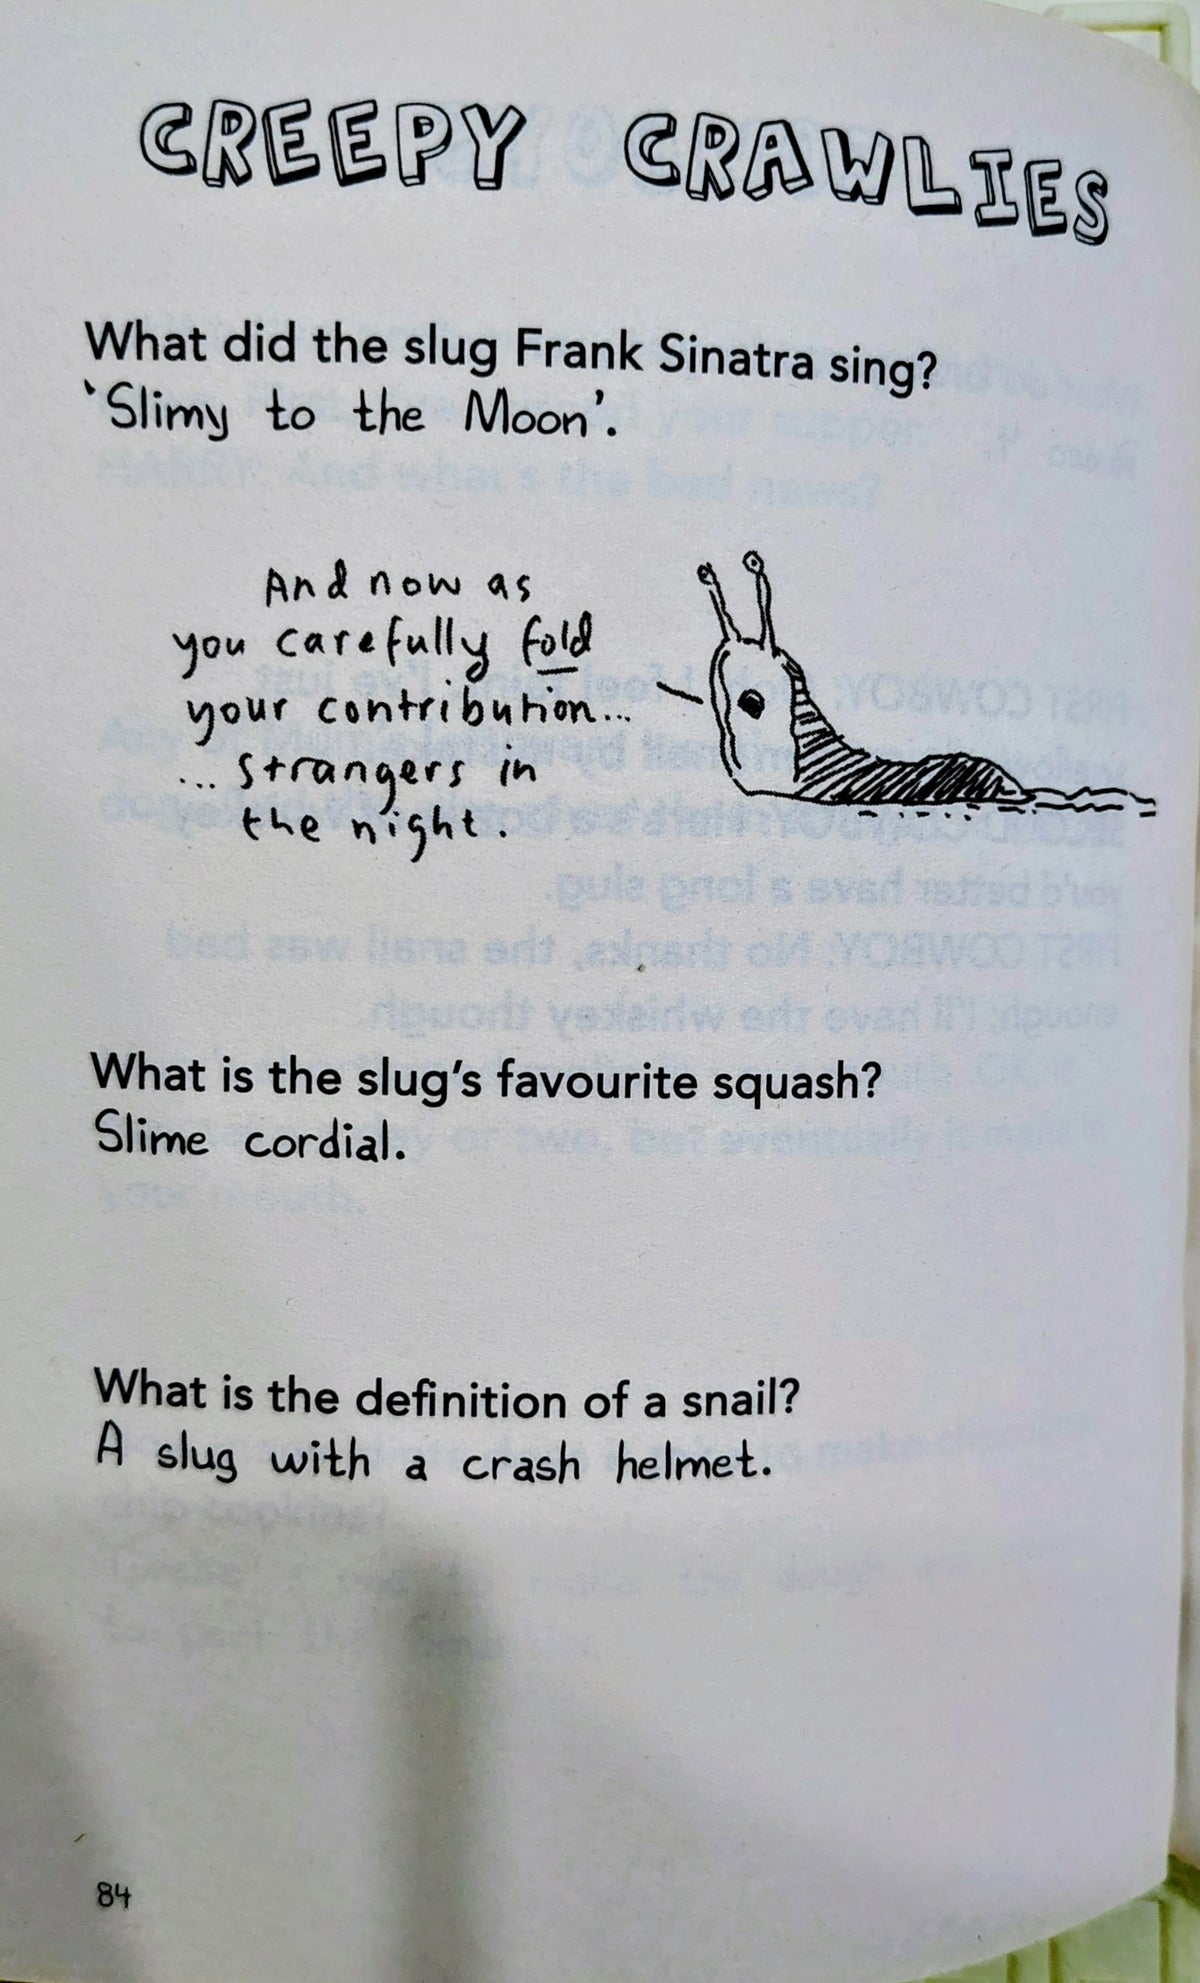 CREEPY CRAWLIES
What did the slug Frank Sinatra sing?
'Slimy to the Moon'.
And now as
you carefully fold
your contribution...
... strangers in
the night.
What is the slug's favourite squash?
Slime cordial.
What is the definition of a snail?
A slug with a crash helmet.
84